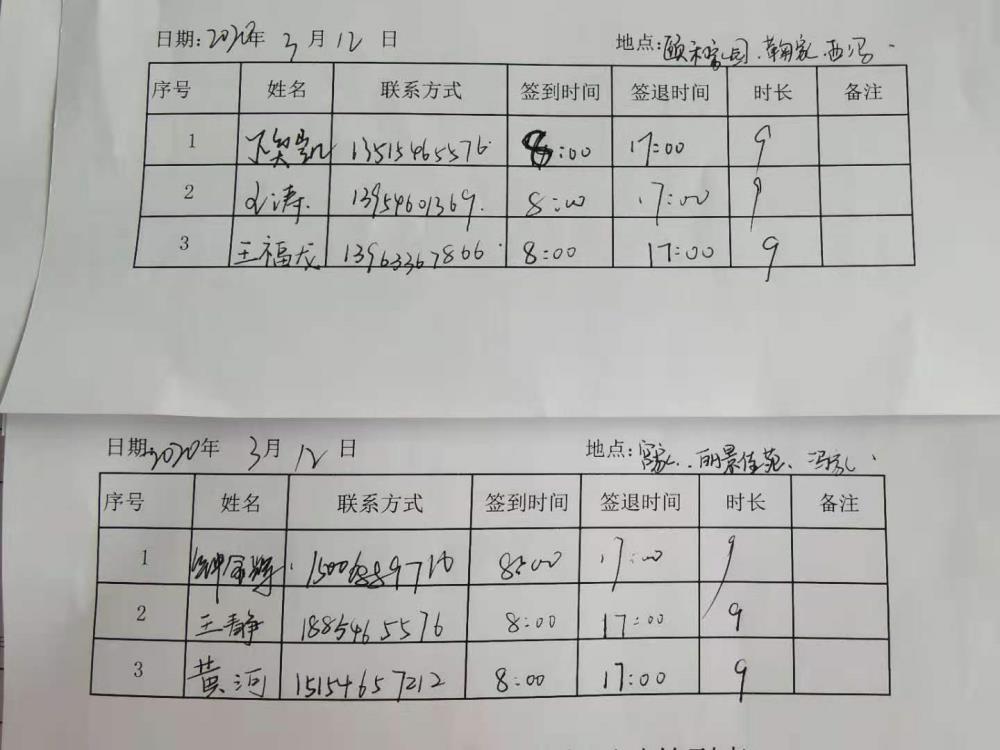 日期:2020年 3月 12日 地点:颐和家园.翰家.西冯.
序号 姓名 联系方式 签到时间 签退时间 时长 备注
1 13515465576 8:00 17:00 9
2 涛 13954601369 8:00 17:00 9
3 王福龙 13963367866 8:00 17:00 9
日期:2020年 3月 12日 地点: 丽景佳苑、冯家.
序号 姓名 联系方式 签到时间 签退时间 时长 备注
1 8:00 17:00 9
2 王静 1885465576 8:00 17:00 9
3 黄河 15154657212 8:00 17:00 9